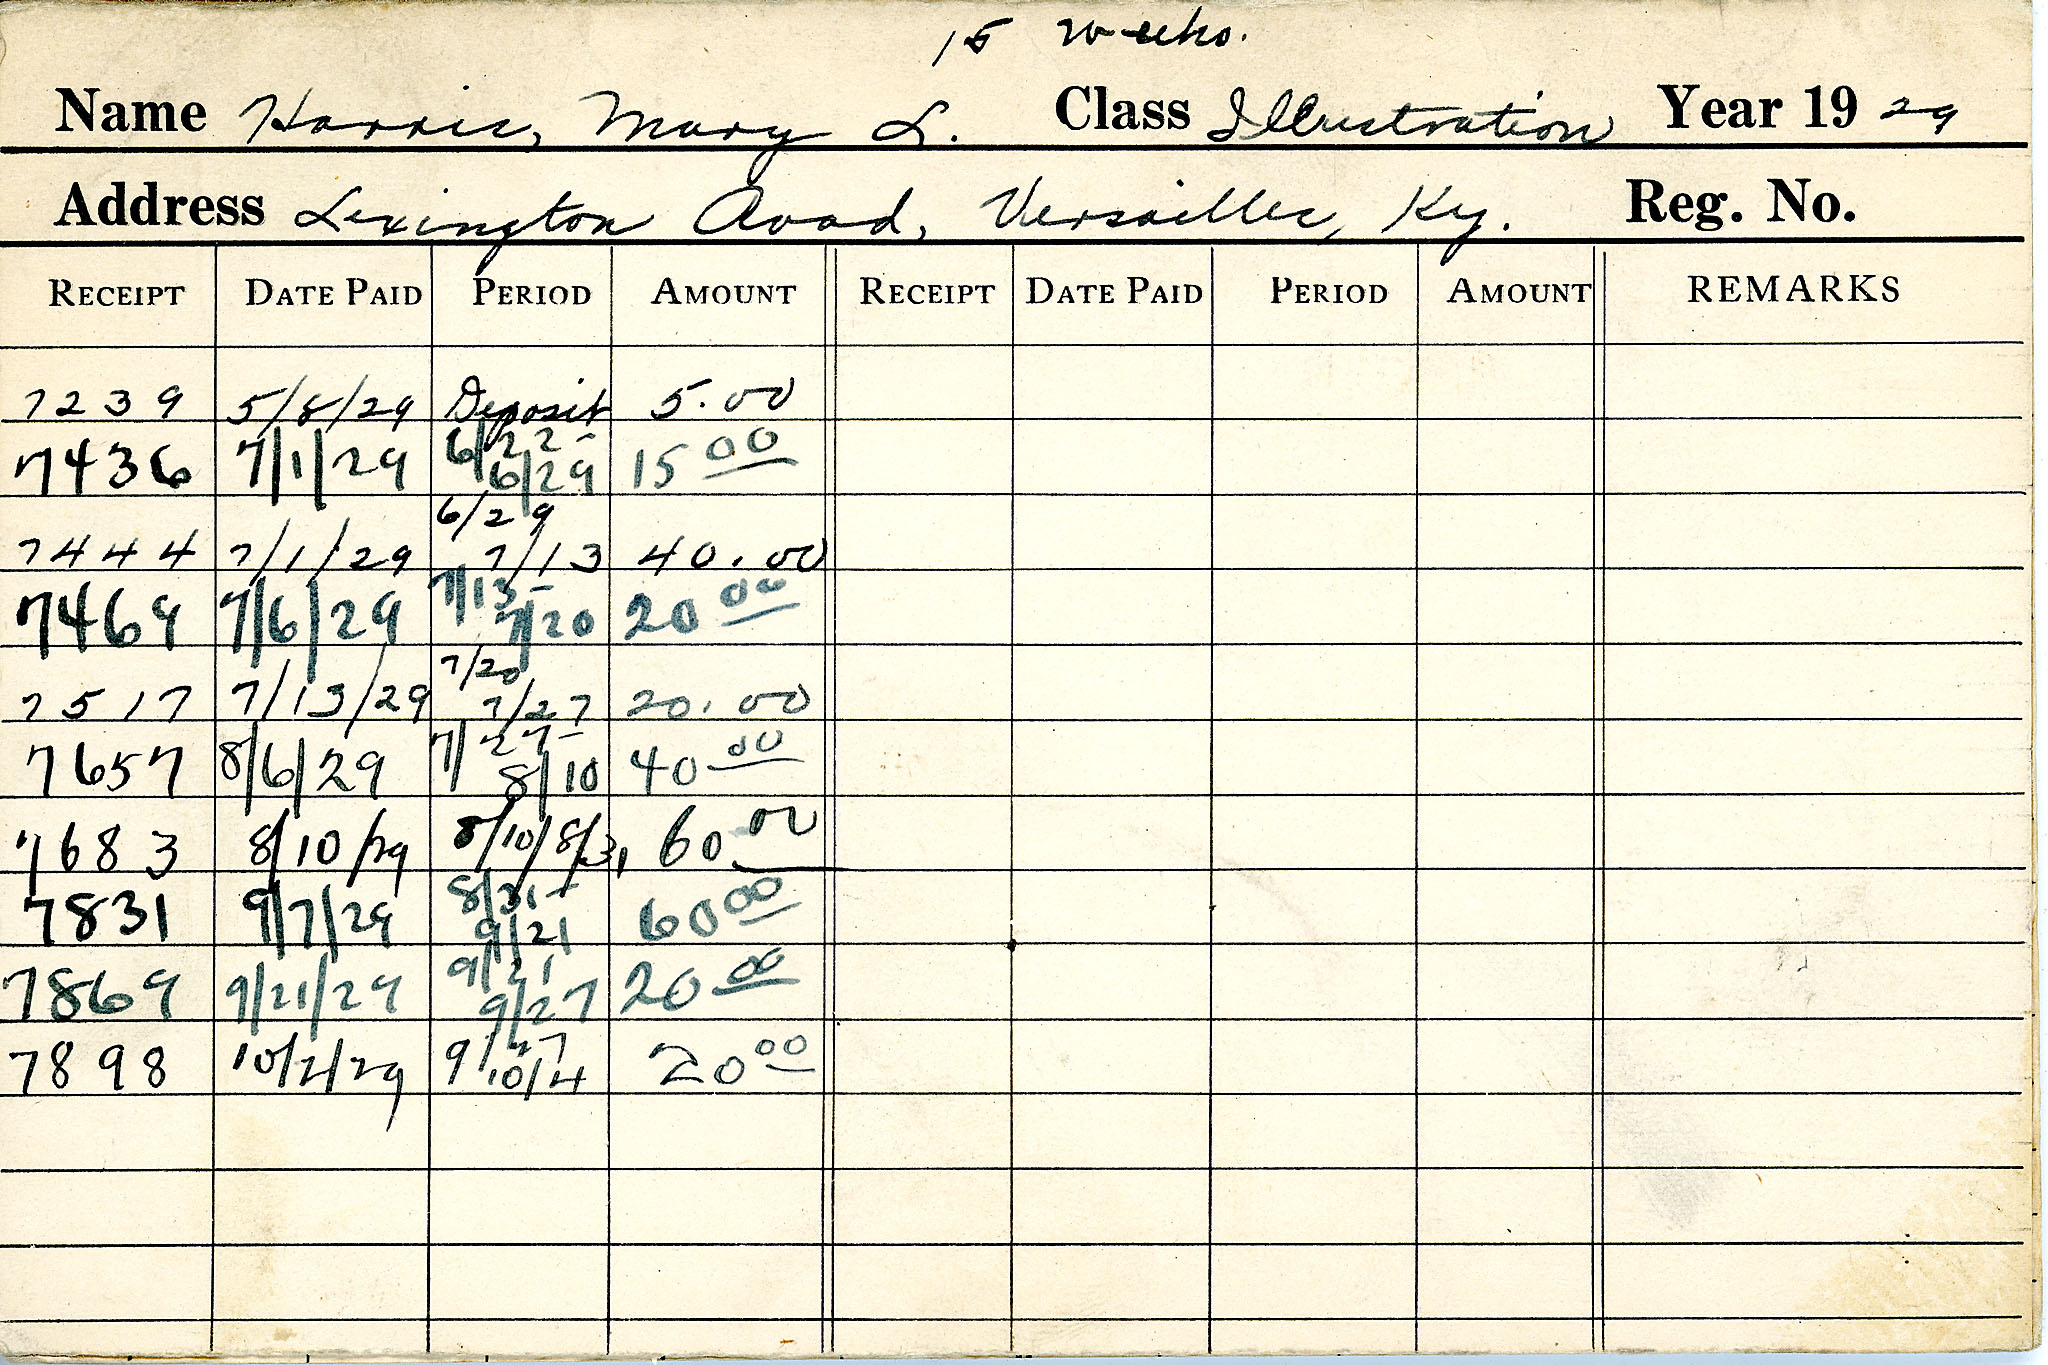 15 weeks.
Name Harris, Mary L. Class Illustration Year 19 29
Address Lexington Road, Versailles, Ky. Reg. No.
RECEIPT DATE PAID PERIOD AMOUNT RECEIPT DATE PAID PERIOD AMOUNT REMARKS
7239 5/8/29 Deposit 5.00
7436 7/1/29 6/22- 6/29 15 00
7444 7/1/29 6/29 7/13 40.00
7469 7/6/29 7/13- 7/20 20 00
7517 7/13/29 7/20 7/27 20.00
7657 8/6/29 7/27- 8/10 40 00
7683 8/10/29 8/10/8/31 60 00
7831 9/7/29 8/31- 9/21 60 00
7869 9/21/29 9/21 9/27 20 00
7898 10/2/29 9/27 10/4 20 00